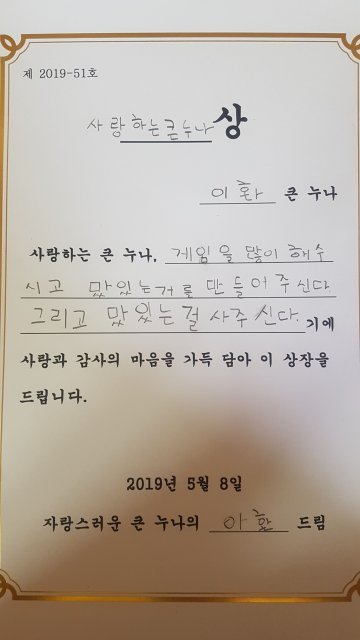 제 2019-51호
사랑하는큰누나상
이환 큰 누나
사랑하는 큰 누나, 게임을 많이 해주
시고 맜있는거를 만들어주신다
그리고 맜있는걸 사주신다. 기에
사랑과 감사의 마음을 가득 담아 이 상장을
드립니다.
2019년 5월 8일
자랑스러운 큰 누나의 아환 드림